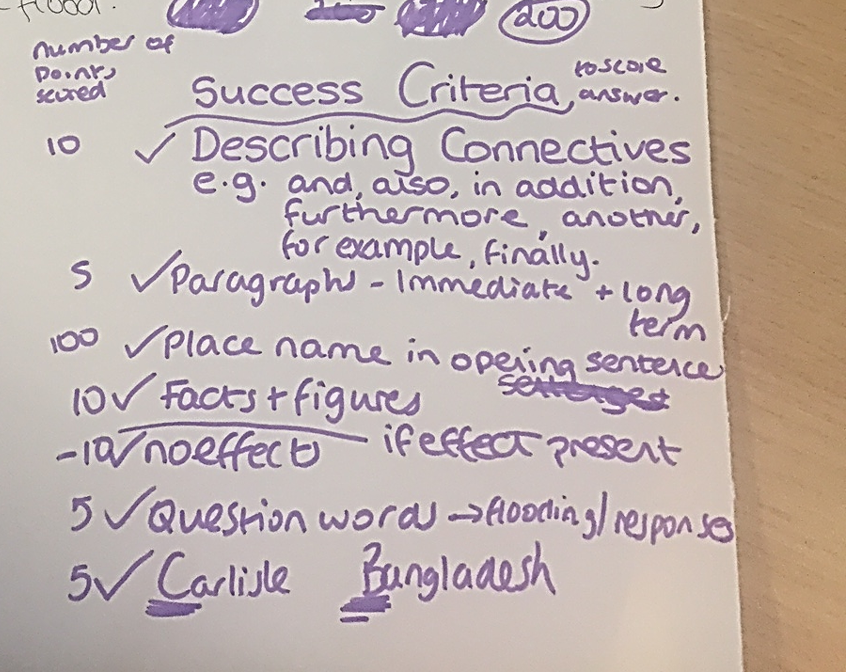 200
number of
points
scored
Success Criteria, to score answer.
10 ✓ Describing Connectives
e.g. and, also, in addition,
furthermore, another,
for example, finally.
5 ✓ Paragraphs - Immediate + long
term
100 ✓ Place name in opening sentence
10 ✓ Facts + figures
-10 ✓ no effects if effect present
5 ✓ Question words → flooding/responses
5 ✓ Carlisle Bangladesh